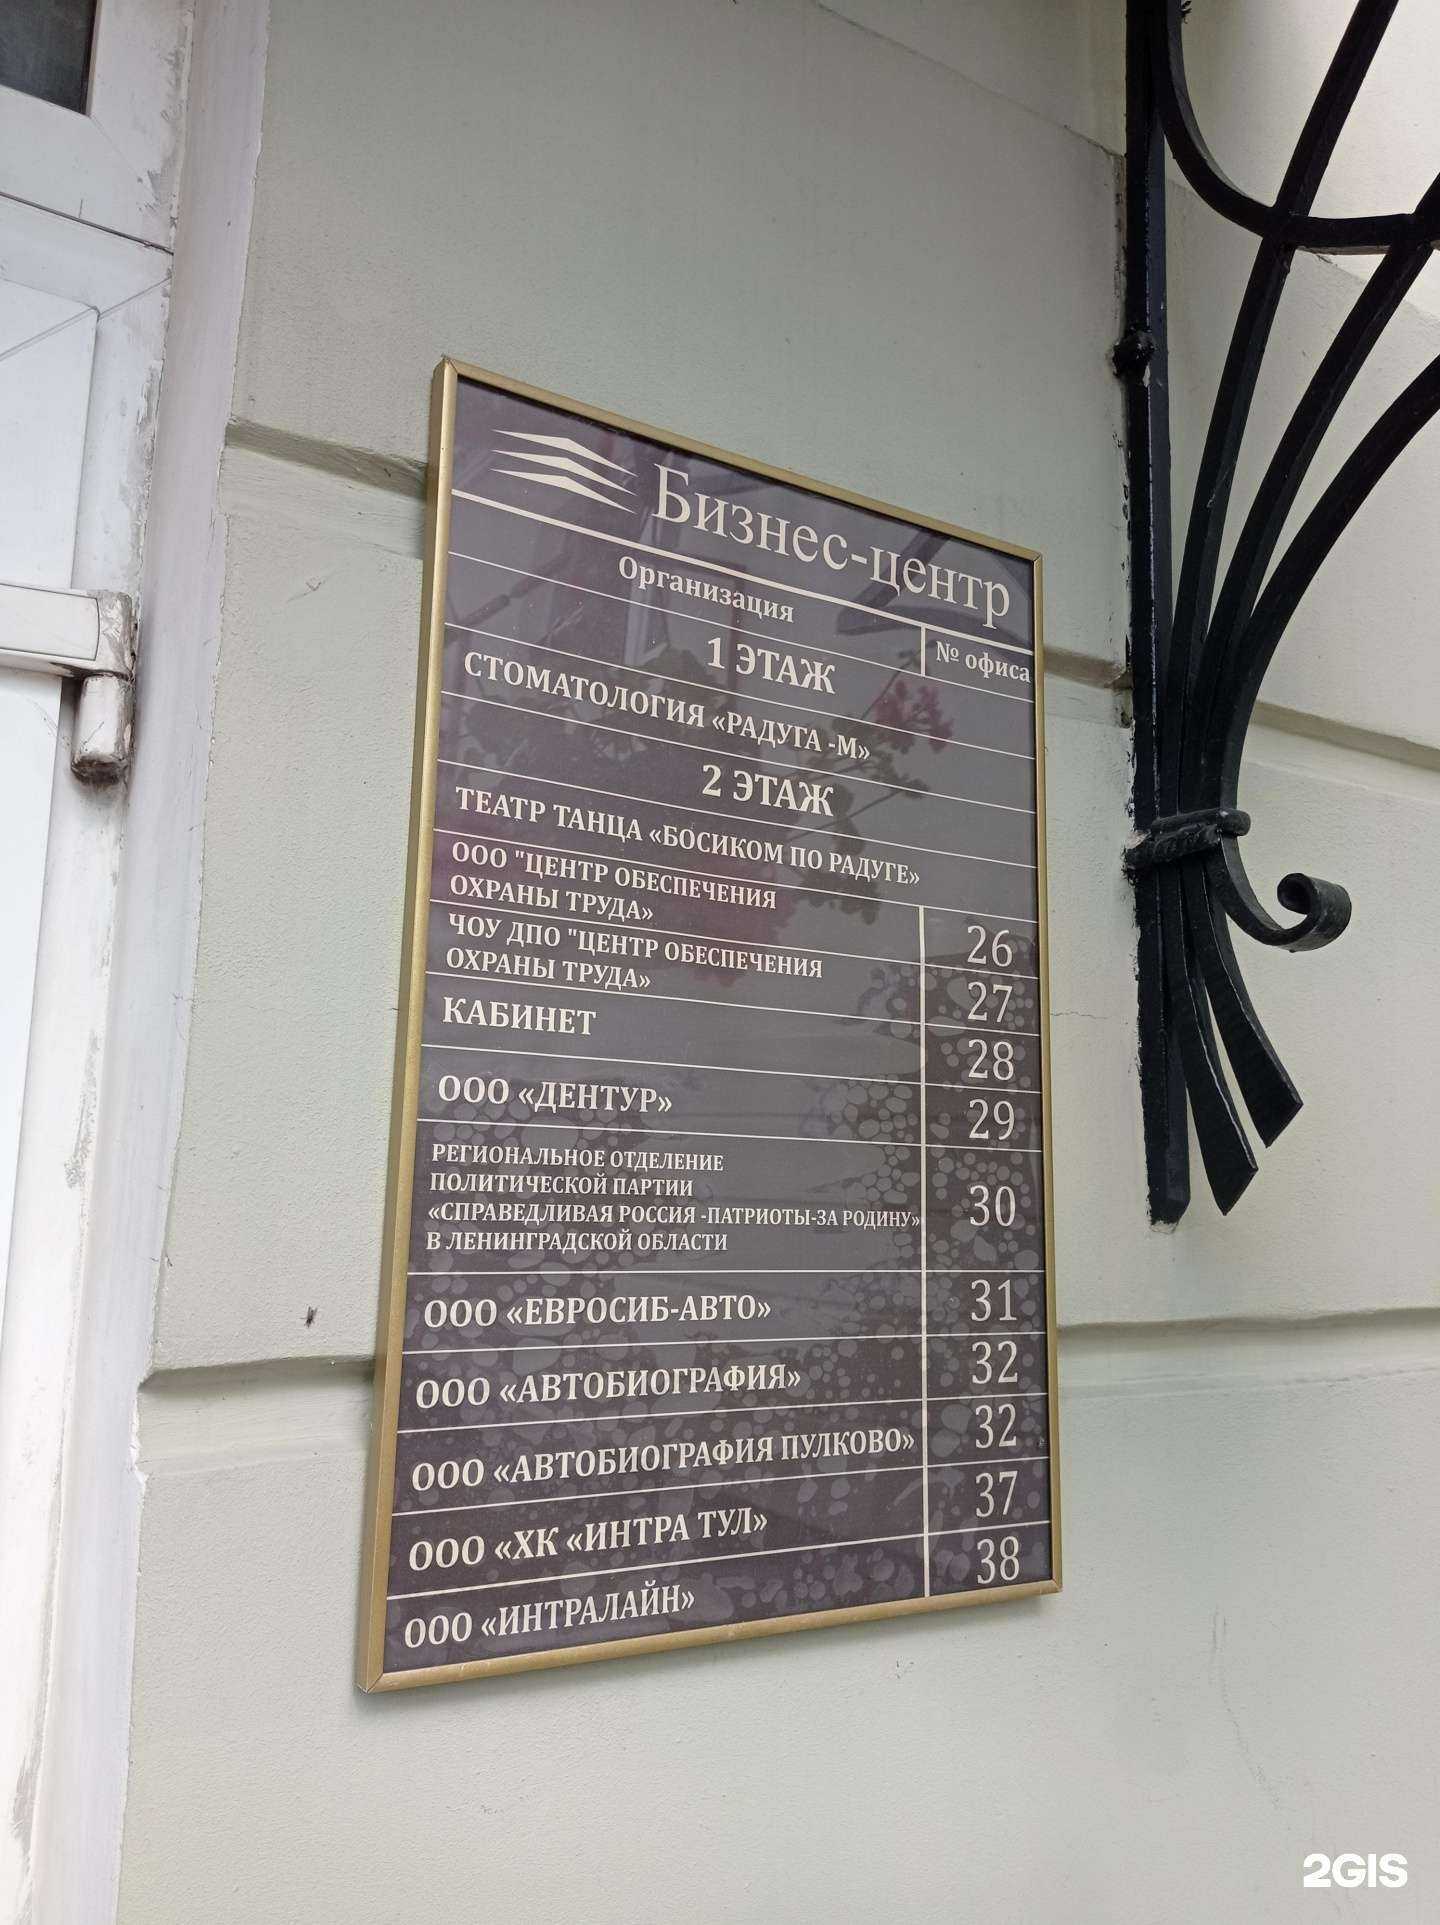 Бизнес-центр
Организация № офиса
1 ЭТАЖ
СТОМАТОЛОГИЯ «РАДУГА -М»
2 ЭТАЖ
ТЕАТР ТАНЦА «БОСИКОМ ПО РАДУГЕ»
ООО "ЦЕНТР ОБЕСПЕЧЕНИЯ
ОХРАНЫ ТРУДА» 26
ЧОУ ДПО "ЦЕНТР ОБЕСПЕЧЕНИЯ
ОХРАНЫ ТРУДА» 27
КАБИНЕТ 28
ООО «ДЕНТУР» 29
РЕГИОНАЛЬНОЕ ОТДЕЛЕНИЕ
ПОЛИТИЧЕСКОЙ ПАРТИИ
«СПРАВЕДЛИВАЯ РОССИЯ -ПАТРИОТЫ-ЗА РОДИНУ» 30
В ЛЕНИНГРАДСКОЙ ОБЛАСТИ
ООО «ЕВРОСИБ-АВТО» 31
ООО «АВТОБИОГРАФИЯ» 32
ООО «АВТОБИОГРАФИЯ ПУЛКОВО» 32
ООО «ХК «ИНТРА ТУЛ» 37
ООО «ИНТРАЛАЙН» 38
2GIS